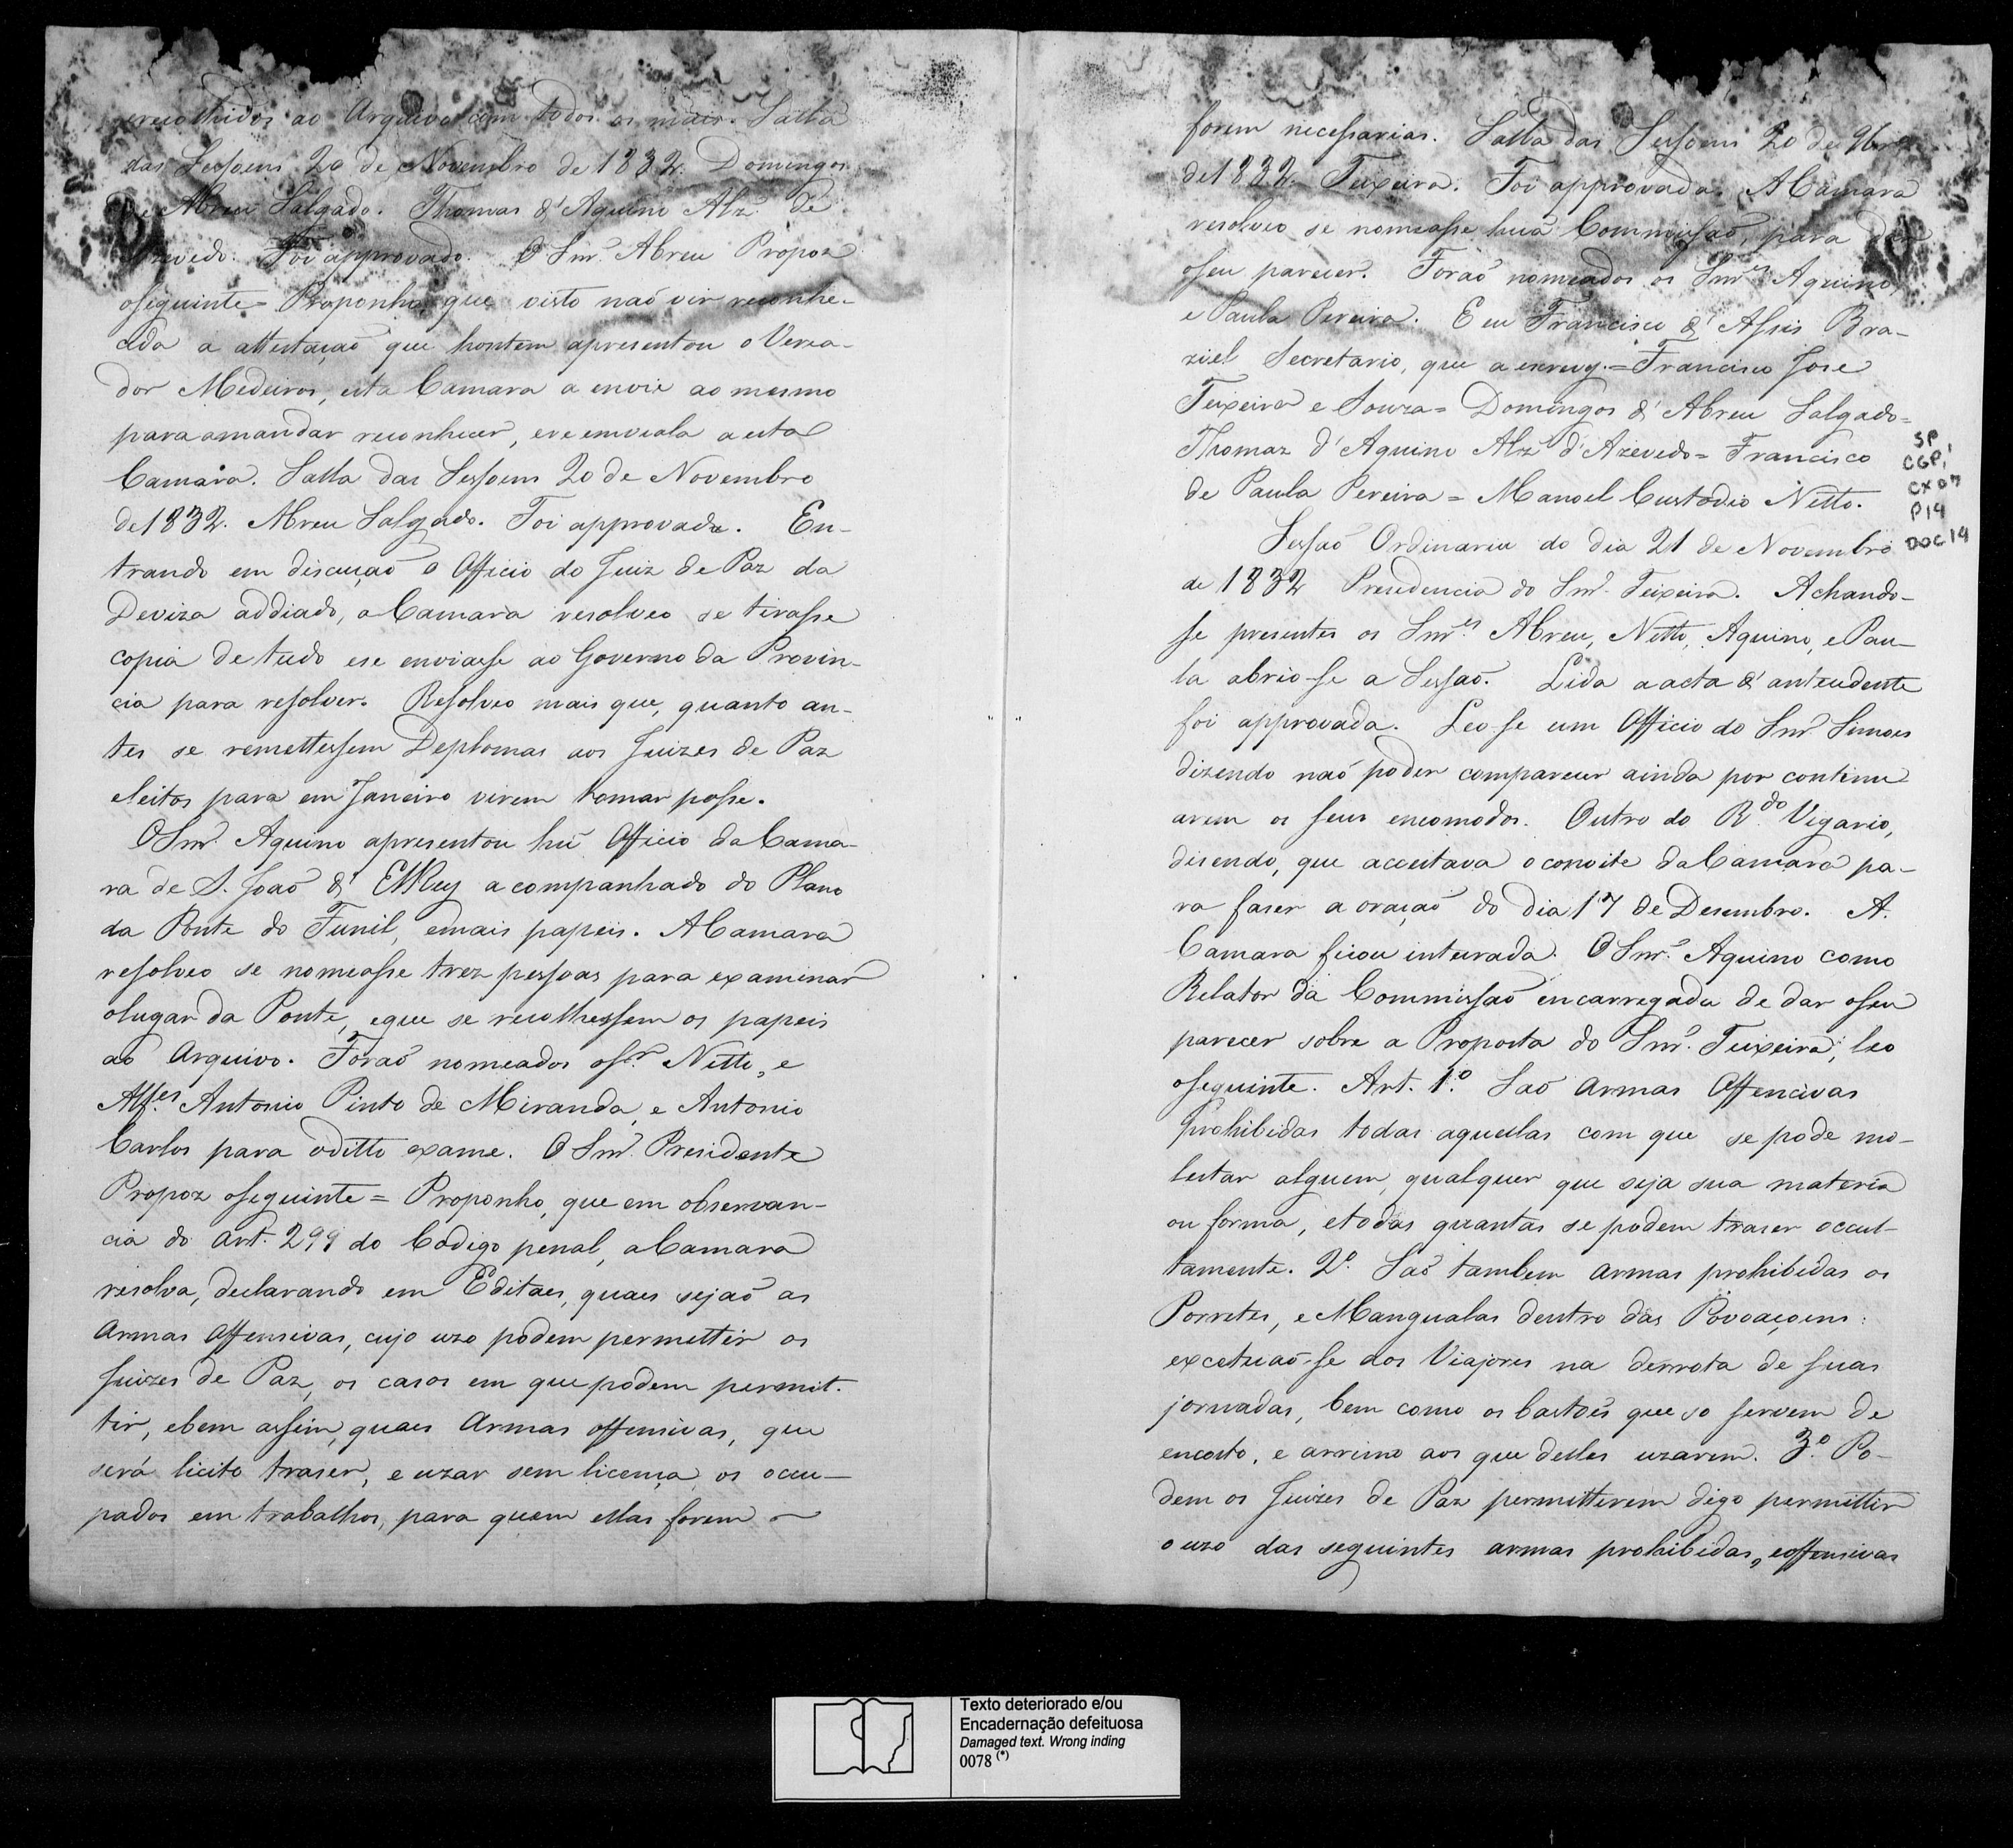 recolhidos ao Arquivo com todos os mais. Salla
das Sessoens 20 de Novembro de 1832. Domingos
de Abreu Salgado. Thomas d'Aquino Alz. de
Azevedo. Foi approvado. O Snr. Abreu Propoz
oseguinte = Proponho que visto naõ vir reconhe-
cida a attestaçaõ que hontem apresentou o Verea-
dor Medeiros, esta Camara a envie ao mesmo
para amandar reconhecer, e reenviala a esta
Camara. Salla das Sessoens 20 de Novembro
de 1832. Abreu Salgado. Foi approvada. En-
trando em discuçaõ o Officio do Juiz de Paz da
Deviza addiado, a Camara resolveo se tirasse
copia de tudo ese enviasse ao Governo da Provin-
cia para resolver. Resolveo mais que, quanto an-
tes se remettessem Deplomas aos Juizes de Paz
eleitos para em Janeiro virem tomar posse.
O Snr. Aquino apresentou hũ Officio da Cama-
ra de S. Joaõ d' ElRey acompanhado do Plano
da Ponte do Funil, emais papeis. A Camara
resolveo se nomeasse trez pessoas para examinar
olugar da Ponte, eque se recolhessem os papeis
ao Arquivo. Foraõ nomeados os Sr. Netto, e
Alfes. Antonio Pinto de Miranda, e Antonio
Carlos para oditto exame. O Snr. Presidente
Propoz oseguinte = Proponho, que em observan-
cia do Art. 299 do Codigo penal, a Camara
resolva, declarando em Editaes, quaes sejaõ as
Armas Offensivas, cujo uzo podem permettir os
Juizes de Paz, os casos em que podem permit-
tir, ebem assim, quaes Armas offensivas, que
será licito traser, e uzar sem licença os ocu-
pados em trabalhos, para quem ellas forem
forem necessarias. Salla das Sessoens 20 de 9bro
de 1832. Teixeira. Foi approvada. A Camara
resolveo se nomeasse huã Commissaõ, para dar
oseu parecer. Foraõ nomeados os Snres Aquino,
e Paula Pereira. E eu Francisco d' Assis Bra-
ziel Secretario, que a escrevy. = Francisco Jose
Teixeira e Souza = Domingos d' Abreu Salgado =
Thomaz d' Aquino Alz d' Azevedo = Francisco
de Paula Pereira = Manoel Custodio Netto.
SP
CGP1
CX07
P14
DOC 14
Sessaõ Ordinaria do dia 21 de Novembro
de 1832 Presidencia do Snr. Teixeira. Achando-
se presentes os Snres. Abreu, Netto, Aquino, e Pau-
la abrio-se a Sessaõ. Lida a acta d' antecedente
foi approvada. Leo-se um Officio do Snr. Simoes
dizendo naõ poder comparecer ainda por continu
arem os seus encomodos. Outro do Rdo. Vigario,
disendo, que acceitava o convite da Camara pa-
ra faser a oraçaõ do dia 17 de Desembro. A.
Camara ficou inteirada. O Snr. Aquino como
Relator da Commissaõ encarregada de dar oseu
parecer sobre a Proposta do Snr. Teixeira, leo
oseguinte. Art. 1.º Saõ armas Offencivas
Prohibidas todas aquellas com que se pode mo-
lestar alguem, qualquer que seja sua materia
ou forma, etodas quantas se podem traser occul-
tamente. 2º. Saõ tambem armas prohibidas os
Porretes, e Mangualas dentro das Povoaçoens:
excetuaõ-se aos Viajores na derrota de suas
jornadas, bem como os bastoẽs que so servem de
encosto, e arrimo aos que delles uzarem. 3º. Po-
dem os Juizes de Paz permitterem digo permittir
o uzo das seguintes armas prohibidas, eoffensivas
Texto deteriorado e/ou
Encadernação defeituosa
Damaged text. Wrong inding
0078 (*)